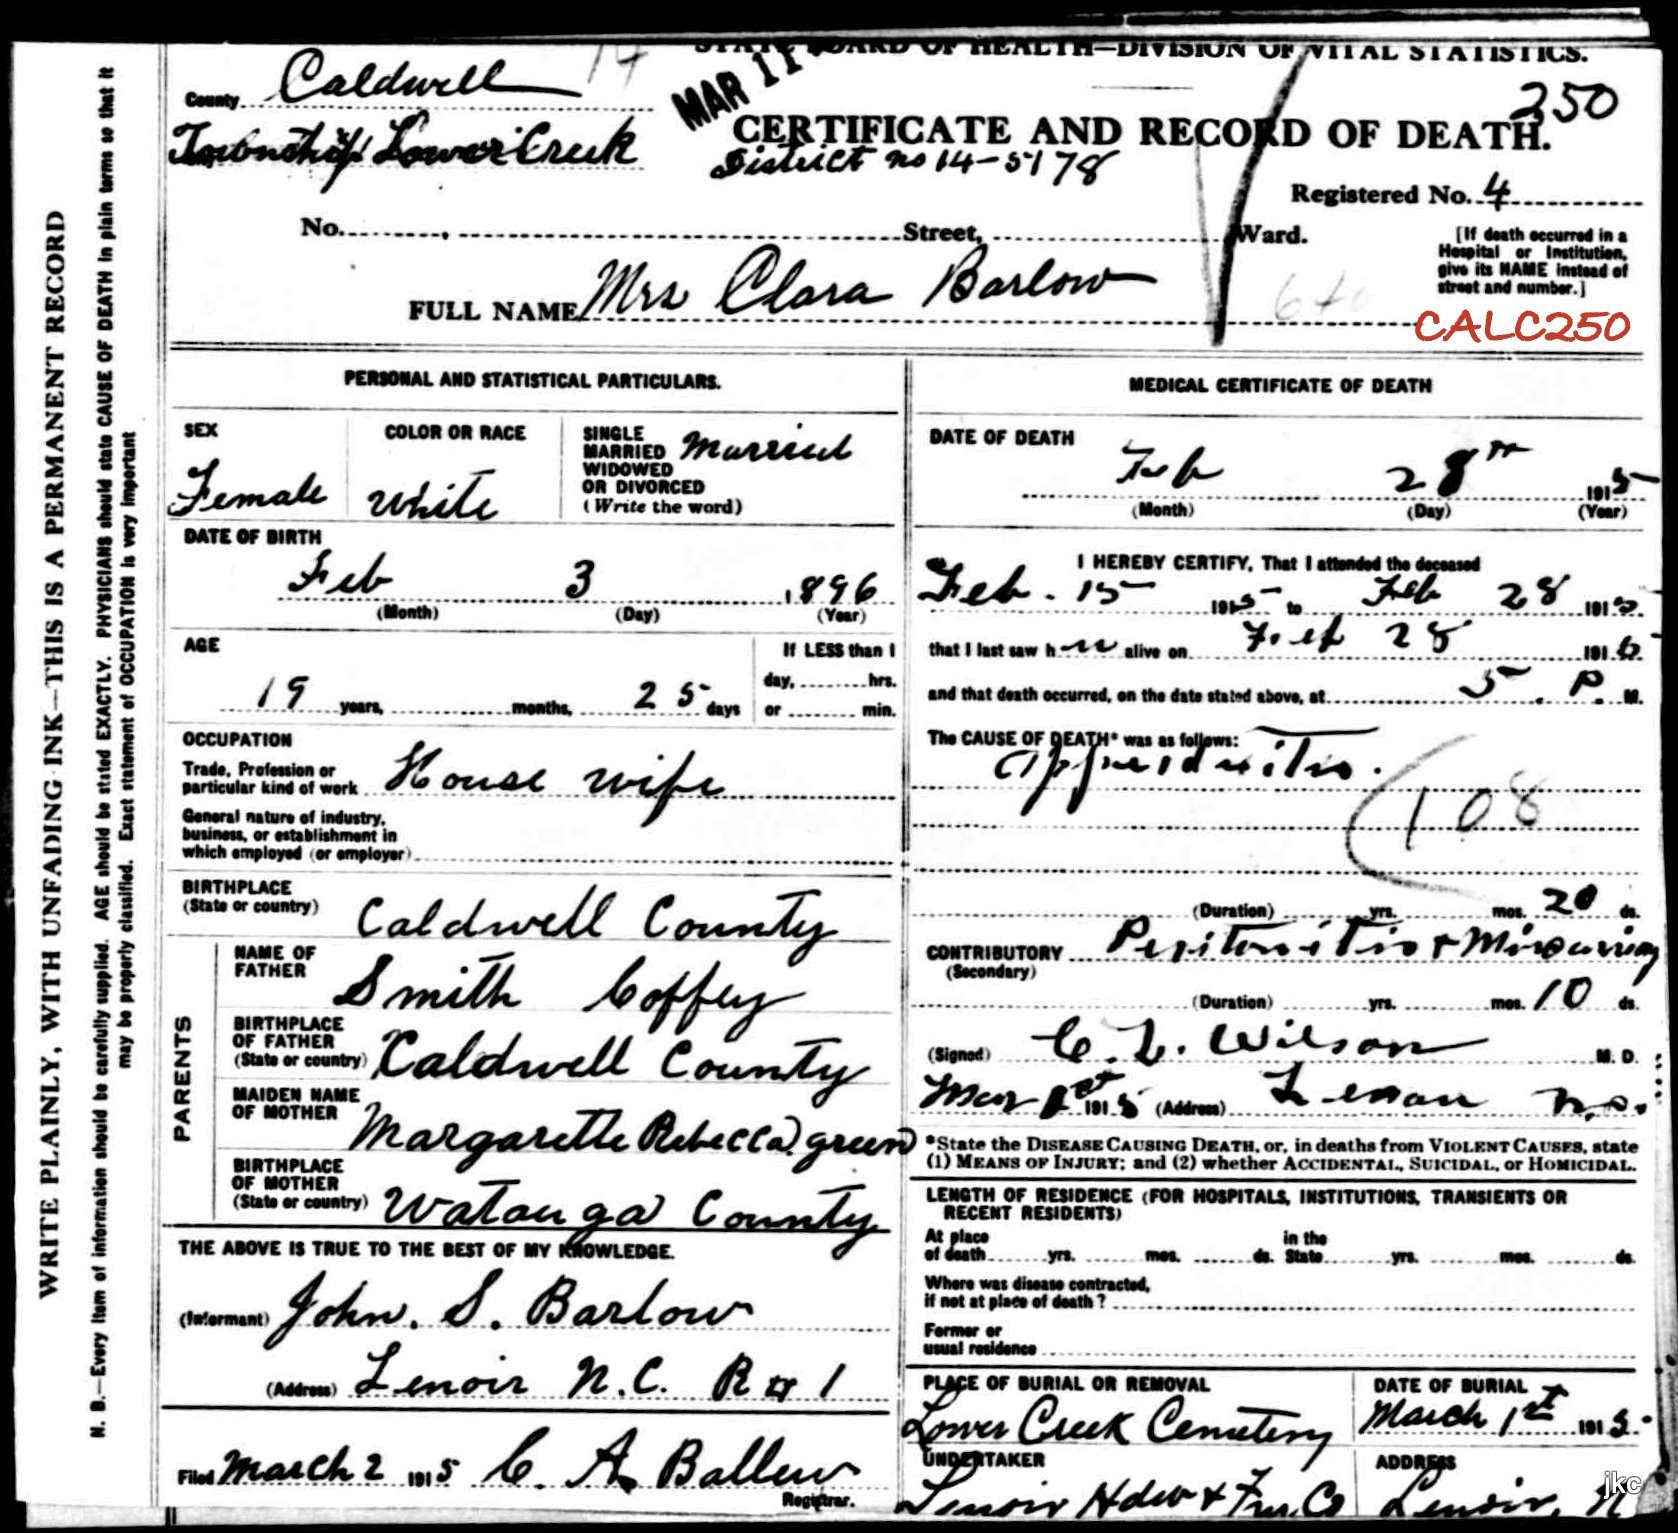 STATE BOARD OF HEALTH—DIVISION OF VITAL STATISTICS.
MAR 11
14
County Caldwell
Township Lower Creek
250
CERTIFICATE AND RECORD OF DEATH.
District no 14-5178
Registered No. 4
No. , Street, Ward.
[If death occurred in a
Hospital or Institution,
give its NAME instead of
street and number.]
FULL NAME Mrs Clara Barlow
CALC250
PERSONAL AND STATISTICAL PARTICULARS.
SEX
Female
COLOR OR RACE
White
SINGLE
MARRIED
WIDOWED
OR DIVORCED
(Write the word)
Married
DATE OF BIRTH
Feb 3 1896
(Month) (Day) (Year)
AGE
19 years, months, 25 days
If LESS than 1
day, hrs.
or min.
OCCUPATION
Trade, Profession or
particular kind of work House wife
General nature of industry,
business, or establishment in
which employed (or employer)
BIRTHPLACE
(State or country) Caldwell County
PARENTS
NAME OF
FATHER Smith Coffey
BIRTHPLACE
OF FATHER
(State or country) Caldwell County
MAIDEN NAME
OF MOTHER Margarette Rebecca green
BIRTHPLACE
OF MOTHER
(State or country) Watauga County
THE ABOVE IS TRUE TO THE BEST OF MY KNOWLEDGE.
(Informant) John. S. Barlow
(Address) Lenoir N.C. R # 1
Filed March 2 1915 C. A. Ballew
Registrar.
MEDICAL CERTIFICATE OF DEATH
DATE OF DEATH
Feb 28th 1915
(Month) (Day) (Year)
I HEREBY CERTIFY, That I attended the deceased
Feb. 15 1915 to Feb 28 1915
that I last saw h er alive on Feb 28 1915
and that death occurred, on the date stated above, at 5. P. M.
The CAUSE OF DEATH* was as follows:
Appendicitis.
108
(Duration) yrs. mos. 20 ds.
CONTRIBUTORY Peritonitis & Miscarriag
(Secondary)
(Duration) yrs. mos. 10 ds.
(Signed) C. L. Wilson M. D.
Mar 1st 1915 (Address) Lenoir N.C.
*State the DISEASE CAUSING DEATH, or, in deaths from VIOLENT CAUSES, state
(1) MEANS OF INJURY; and (2) whether ACCIDENTAL, SUICIDAL, or HOMICIDAL.
LENGTH OF RESIDENCE (FOR HOSPITALS, INSTITUTIONS, TRANSIENTS OR
RECENT RESIDENTS)
At place
of death yrs. mos. ds.
in the
State yrs. mos. ds.
Where was disease contracted,
if not at place of death?
Former or
usual residence
PLACE OF BURIAL OR REMOVAL
Lower Creek Cemetery
DATE OF BURIAL
March 1st 1915.
UNDERTAKER
Lenoir Hdw & Fur. Co
ADDRESS
Lenoir, N
jkc
WRITE PLAINLY, WITH UNFADING INK—THIS IS A PERMANENT RECORD
N. B.—Every item of information should be carefully supplied. AGE should be stated EXACTLY. PHYSICIANS should state CAUSE OF DEATH in plain terms so that it
may be properly classified. Exact statement of OCCUPATION is very important